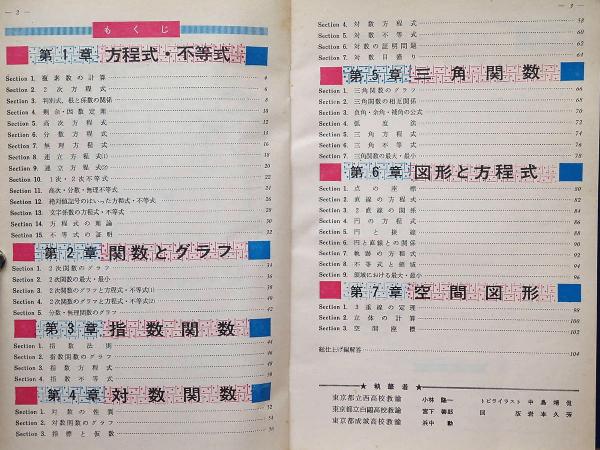 — 2 —
もくじ
第1章 方程式・不等式
Section 1. 複素数の計算 4
Section 2. 2次方程式 6
Section 3. 判別式, 根と係数の関係 8
Section 4. 剰余・因数定理 10
Section 5. 高次方程式 12
Section 6. 分数方程式 14
Section 7. 無理方程式 16
Section 8. 連立方程式(1) 18
Section 9. 連立方程式(2) 20
Section 10. 1次・2次不等式 22
Section 11. 高次・分数・無理不等式 24
Section 12. 絶対値記号のはいった方程式・不等式 26
Section 13. 文字係数の方程式・不等式 28
Section 14. 方程式の理論 30
Section 15. 不等式の証明 32
第2章 関数とグラフ
Section 1. 2次関数のグラフ 34
Section 2. 2次関数の最大・最小 36
Section 3. 2次関数のグラフと方程式・不等式(1) 38
Section 4. 2次関数のグラフと方程式・不等式(2) 40
Section 5. 分数・無理関数のグラフ 42
第3章 指数関数
Section 1. 指数法則 44
Section 2. 指数関数のグラフ 46
Section 3. 指数方程式 48
Section 4. 指数不等式 50
第4章 対数関数
Section 1. 対数の性質 52
Section 2. 対数関数のグラフ 54
Section 3. 指標と仮数 56
— 3 —
Section 4. 対数方程式 58
Section 5. 対数不等式 60
Section 6. 対数の証明問題 62
Section 7. 対数目盛り 64
第5章 三角関数
Section 1. 三角関数のグラフ 66
Section 2. 三角関数の相互関係 68
Section 3. 負角・余角・補角の公式 70
Section 4. 弧度法 72
Section 5. 三角方程式 74
Section 6. 三角不等式 76
Section 7. 三角関数の最大・最小 78
第6章 図形と方程式
Section 1. 点の座標 80
Section 2. 直線の方程式 82
Section 3. 2直線の関係 84
Section 4. 円の方程式 86
Section 5. 円と接線 88
Section 6. 円と直線との関係 90
Section 7. 軌跡の方程式 92
Section 8. 不等式と領域 94
Section 9. 領域における最大・最小 96
第7章 空間図形
Section 1. 3垂線の定理 98
Section 2. 立体の計算 100
Section 3. 空間座標 102
総仕上げ編解答 104
★執筆者★
東京都立西高校教諭 小林 隆一
東京都立白鷗高校教諭 宮下
東京都成城高校教諭 浜中 勤
トビライラスト 中島靖侃
図版 岩本久芳